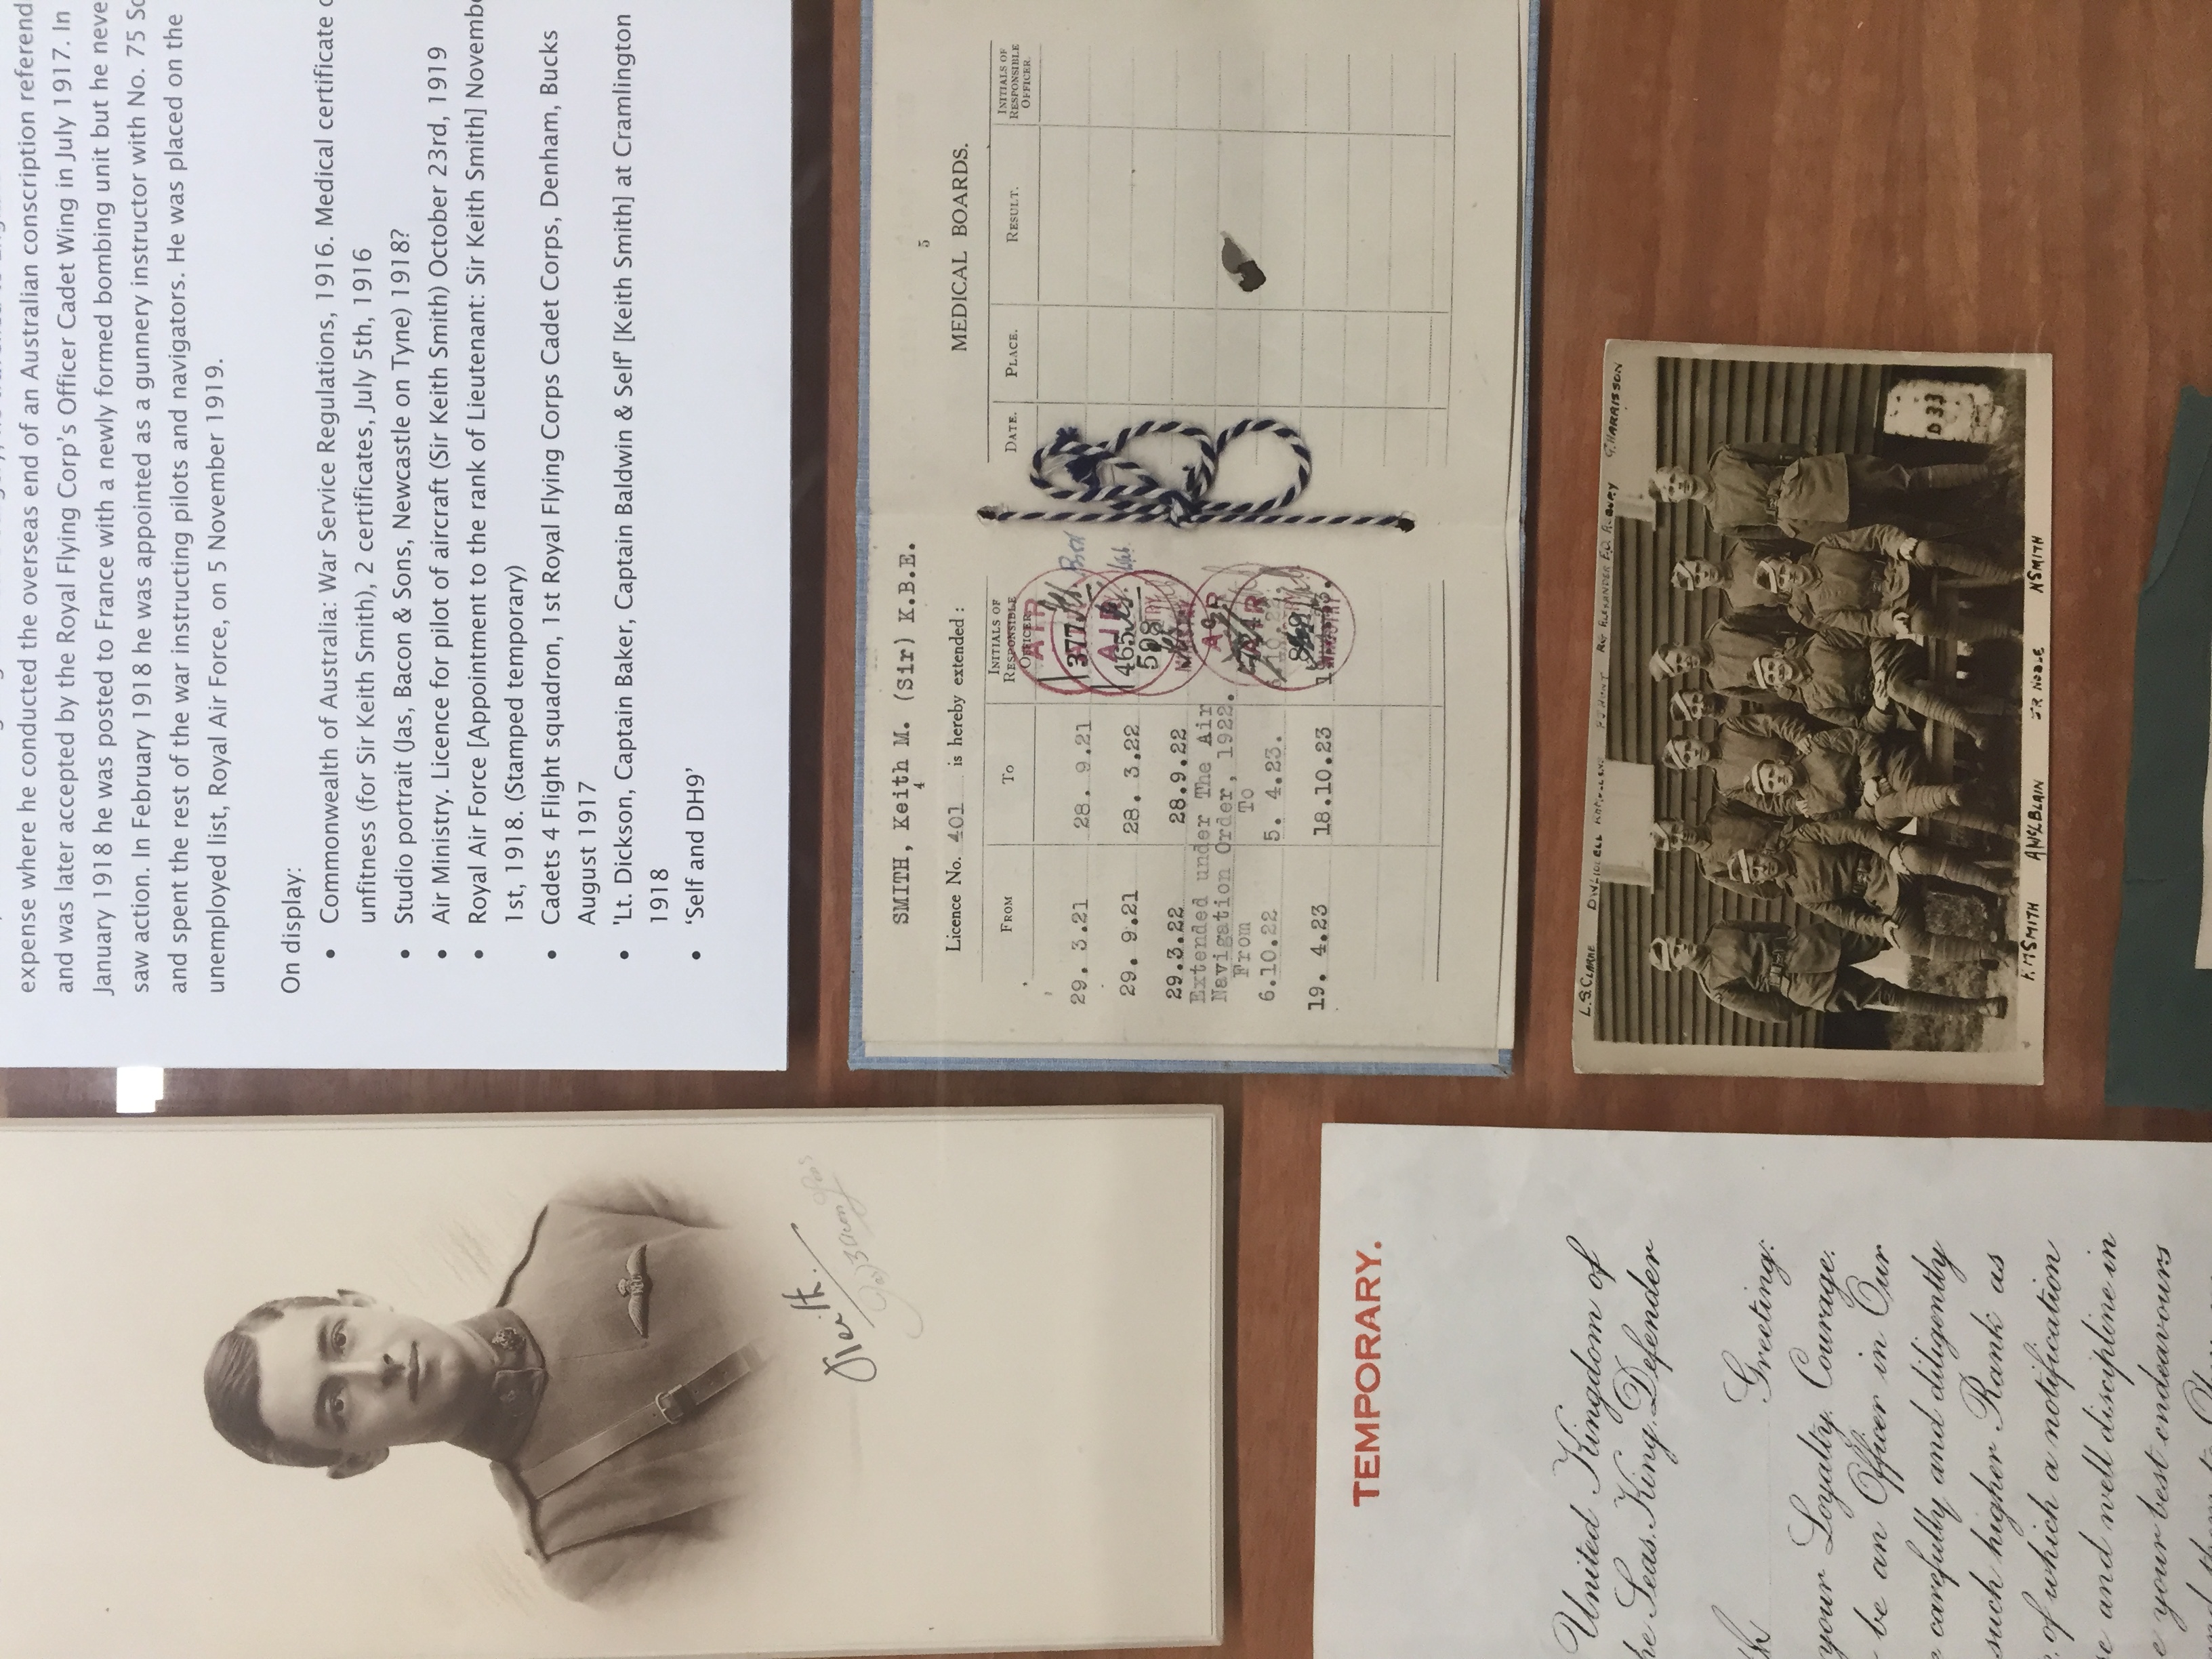 expense where he conducted the overseas end of an Australian conscription referend
and was later accepted by the Royal Flying Corp's Officer Cadet Wing in July 1917. In
January 1918 he was posted to France with a newly formed bombing unit but he neve
saw action. In February 1918 he was appointed as a gunnery instructor with No. 75 Sc
and spent the rest of the war instructing pilots and navigators. He was placed on the
unemployed list, Royal Air Force, on 5 November 1919.
On display:
• Commonwealth of Australia: War Service Regulations, 1916. Medical certificate o
unfitness (for Sir Keith Smith), 2 certificates, July 5th, 1916
• Studio portrait (Jas, Bacon & Sons, Newcastle on Tyne) 1918?
• Air Ministry. Licence for pilot of aircraft (Sir Keith Smith) October 23rd, 1919
• Royal Air Force [Appointment to the rank of Lieutenant: Sir Keith Smith] Novembe
1st, 1918. (Stamped temporary)
• Cadets 4 Flight squadron, 1st Royal Flying Corps Cadet Corps, Denham, Bucks
August 1917
• 'Lt. Dickson, Captain Baker, Captain Baldwin & Self' [Keith Smith] at Cramlington
1918
• 'Self and DH9'
SMITH, Keith M. (Sir) K.B.E.
4
Licence No. 401 is hereby extended:
FROM To INITIALS OF RESPONSIBLE OFFICER.
29. 3.21 28. 9.21
29. 9.21 28. 3.22
29.3.22 28.9.22
Extended under The Air
Navigation Order, 1922.
From To
6.10.22 5. 4.23.
19. 4.23 18.10.23
5
MEDICAL BOARDS.
DATE. PLACE. RESULT. INITIALS OF RESPONSIBLE OFFICER.
Keith.
L.S. CLARKE G. HARRISON
D 33
K. M SMITH A McBLAIN JR NOBLE N SMITH
TEMPORARY.
United Kingdom of
he Seas, King, Defender
Greeting:
your Loyalty, Courage,
be an Officer in Our
carefully and diligently
such higher Rank as
of which a notification
and well discipline in
your best endeavours